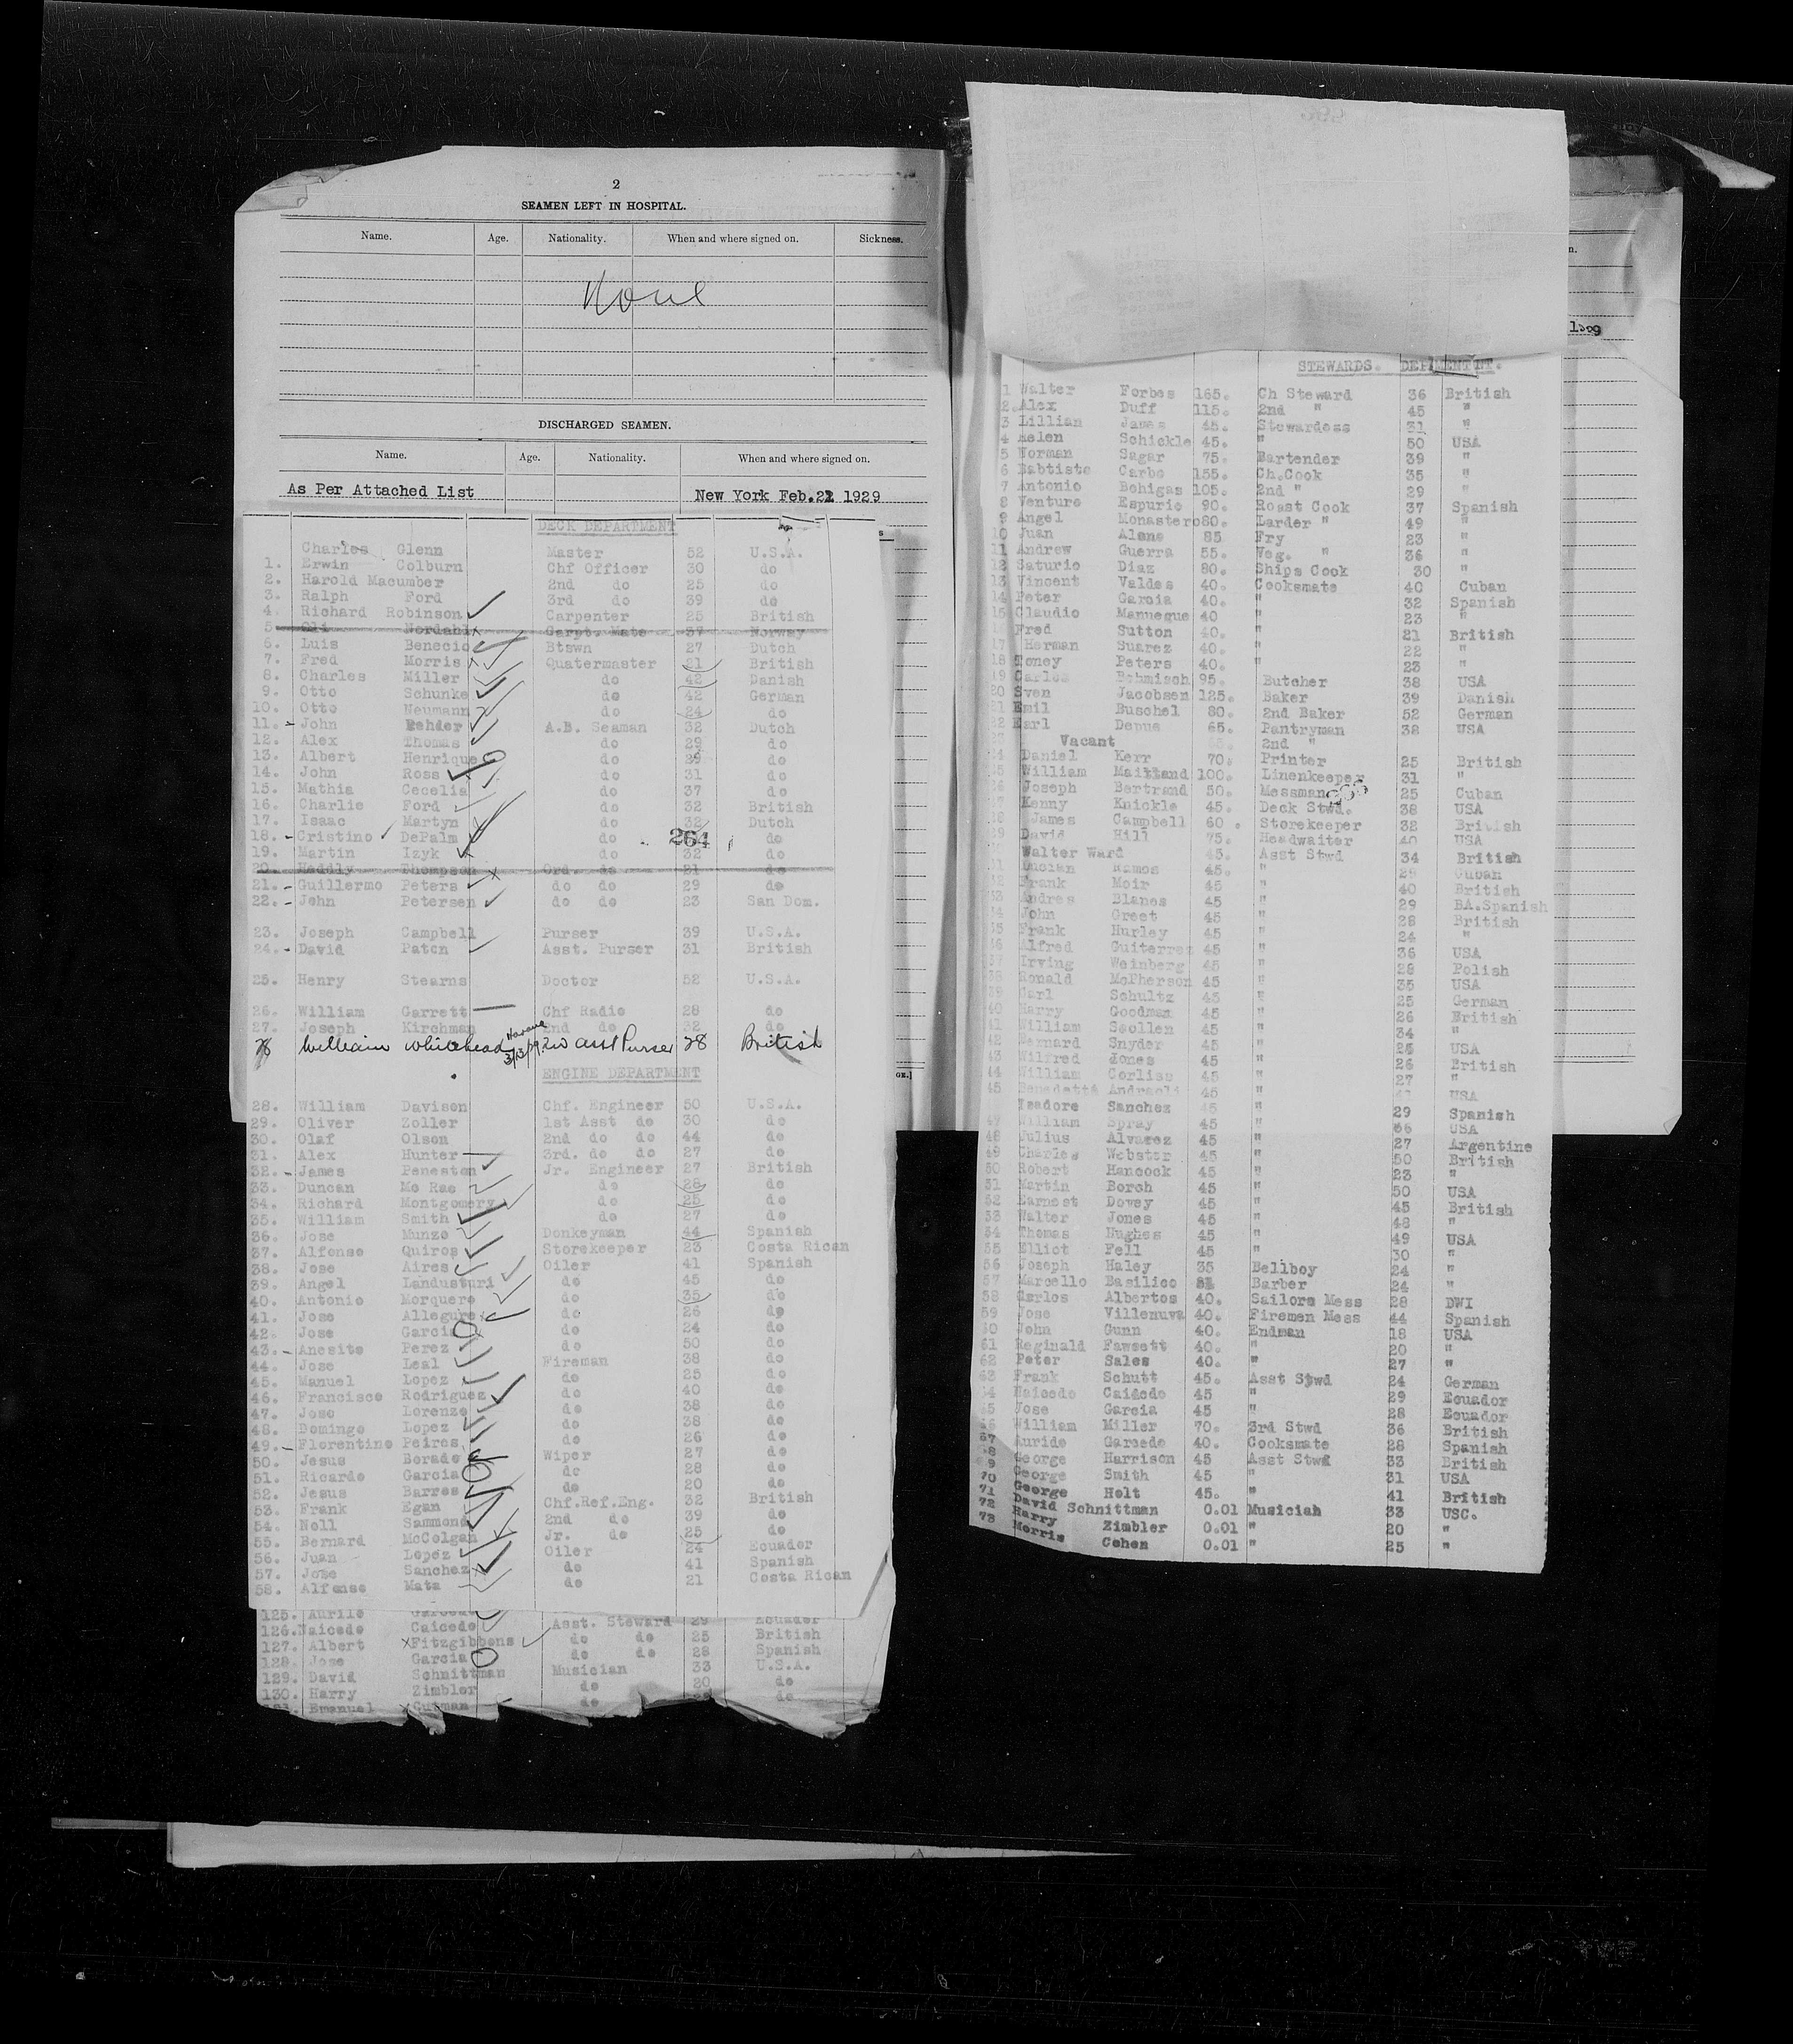 2
SEAMEN LEFT IN HOSPITAL.
Name. Age. Nationality. When and where signed on. Sickness.
None
DISCHARGED SEAMEN.
Name. Age. Nationality. When and where signed on.
As Per Attached List New York Feb.21 1929
DECK DEPARTMENT
Charles Glenn Master 52 U.S.A.
1. Erwin Colburn Chf Officer 30 do
2. Harold Macumber 2nd do 25 do
3. Ralph Ford 3rd do 39 do
4. Richard Robinson Carpenter 25 British
5. Nordahl Carpt. Mate 37 Norway
6. Luis Benecio Btswn 27 Dutch
7. Fred Morris Quatermaster 21 British
8. Charles Miller do 42 Danish
9. Otto Schunke do 42 German
10. Otto Neumann do 24 do
11. - John Rehder A.B. Seaman 32 Dutch
12. Alex Thomas do 29 do
13. Albert Henrique do 39 do
14. John Ross do 31 do
15. Mathia Cecelia do 37 do
16. Charlie Ford do 32 British
17. Isaac Martyn do 32 Dutch
18. - Cristino DePalm do 264 do
19. Martin Izyk do 32 do
20. Thompson Ord. do 21 do
21. - Guillermo Peters do do 29 do
22. - John Petersen do do 23 San Dom.
23. Joseph Campbell Purser 39 U.S.A.
24. - David Paton Asst. Purser 31 British
25. Henry Stearns Doctor 52 U.S.A.
26. William Garrett Chf Radio 28 do
27. Joseph Kirchman 2nd do 32 do
William Whitehead Havana 3/13/29. 2nd asst Purser 28 British
ENGINE DEPARTMENT
28. William Davison Chf. Engineer 50 U.S.A.
29. Oliver Zoller 1st Asst do 30 do
30. Olaf Olson 2nd do do 44 do
31. Alex Hunter 3rd. do do 27 do
32. - James Peneston Jr. Engineer 27 British
33. Duncan Mc Rae do 26 do
34. Richard Montgomery do 25 do
35. William Smith do 27 do
36. Jose Munzo Donkeyman 44 Spanish
37. Alfonso Quiros Storekeeper 23 Costa Rican
38. Jose Aires Oiler 41 Spanish
39. Angel Landusturi do 45 do
40. Antonio Morquero do 35 do
41. Jose Allegure do 26 do
42. Jose Garcia do 24 do
43. - Anesito Perez do 50 do
44. Jose Leal Fireman 38 do
45. Manuel Lopez do 25 do
46. Francisco Rodriguez do 40 do
47. Jose Lorenzo do 38 do
48. Domingo Lopez do 38 do
49. - Florentino Peires do 26 do
50. Jesus Borado Wiper 27 do
51. Ricardo Garcia do 28 do
52. Jesus Barres do 20 do
53. Frank Egan Chf.Ref.Eng. 32 British
54. Noll Sammond 2nd do 39 do
55. Bernard McColgan Jr. do 25 do
56. Juan Lopez Oiler 24 Ecuador
57. Jose Sanchez do 41 Spanish
58. Alfonso Mata do 21 Costa Rican
125. Aurilo 29 Ecuador
126. Naicedo Caicedo Asst. Steward 25 British
127. Albert xFitzgibbons do do 28 Spanish
128. Jose Garcia do do 33 U.S.A.
129. David Schnittman Musician 20 do
130. Harry Zimbler do do
Emanuel Gutman do
STEWARDS. DEPARTMENT.
1 Walter Forbes 165. Ch Steward 36 British
2. Alex Duff 115. 2nd " 45 "
3 Lillian James 45. Stewardess 31 "
4 Helen Schickle 45. " 50 USA
5 Norman Sagar 75. Bartender 39 "
6 Babtiste Carbo 155. Ch.Cook 35 "
7 Antonio Bohigas 105. 2nd " 29 "
8 Venture Espurio 90. Roast Cook 37 Spanish
9 Angel Monastero 80. Larder " 49 "
10 Juan Alano 85 Fry 23 "
11 Andrew Guerra 55. Veg. " 36 "
12 Saturio Diaz 80. Ships Cook 30 "
13 Vincent Valdes 40. Cooksmate 40 Cuban
14 Peter Garcia 40. " 32 Spanish
15 Claudio Manueque 40 " 23 "
Fred Sutton 40. " 21 British
Herman Suarez 40. " 22 "
18 Toney Peters 40. " 23 "
19 Carlos Bohmisch 95. Butcher 38 USA
20 Sven Jacobsen 125. Baker 39 Danish
21 Emil Buschel 80. 2nd Baker 52 German
22 Earl Depue 65. Pantryman 38 USA
Vacant 2nd "
24 Daniel Kerr 70. Printer 25 British
25 William Maitland 100. Linenkeeper 31 "
26 Joseph Bertrand 50. Messman 25 Cuban
27 Kenny Knickle 45. Deck Stwd. 38 USA
28 James Campbell 60. Storekeeper 32 British
29 David Hill 75. Headwaiter 40 USA
Walter Ward 45. Asst Stwd 34 British
31 Lucian Ramos 45. " 29 Cuban
32 Frank Moir 45 " 40 British
33 Andres Blanes 45 " 29 BA.Spanish
34 John Greet 45 " 28 British
35 Frank Hurley 45 " 24 "
36 Alfred Guiterrez 45 " 36 USA
37 Irving Weinberg 45 " 28 Polish
38 Ronald McPherson 45 " 35 USA
39 Carl Schultz 45 " 25 German
40 Harry Goodman 45 " 26 British
41 William Scollen 45 " 34 "
42 Bernard Snyder 45 " 25 USA
43 Wilfred Jones 45 " 26 British
44 William Corliss 45 " 27 "
45 Benedetta Andreoli 45 " 41 USA
Isadore Sanchez 45 " 29 Spanish
47 William Spray 45 " 66 USA
48 Julius Alvarez 45 " 27 Argentine
49 Charles Webster 45 " 50 British
50 Robert Hancock 45 " 23 "
51 Martin Borch 45 " 50 USA
52 Earnest Dovey 45 " 45 British
53 Walter Jones 45 " 48 "
54 Thomas Hughes 45 " 49 USA
55 Elliot Fell 45 " 30 "
56 Joseph Haley 35 Bellboy 24 "
57 Marcello Basilico Barber 24 "
58 Carlos Albertos 40. Sailors Mess 28 DWI
59 Jose Villenuva 40. Firemen Mess 44 Spanish
60 John Gunn 40. Endman 18 USA
61 Reginald Fawsett 40. " 20 "
62 Peter Sales 40. " 27 "
63 Frank Schutt 45. Asst Stwd 24 German
64 Naicedo Caicedo 45 " 29 Ecuador
65 Jose Garcia 45 " 28 Ecuador
66 William Miller 70. 3rd Stwd 36 British
67 Aurido Garcedo 40. Cooksmate 28 Spanish
68 George Harrison 45 Asst Stwd 33 British
69 George Smith 45 " 31 USA
70 George Holt 45. " 41 British
71 David Schnittman 0.01 Musician 33 USC.
72 Harry Zimbler 0.01 " 20 "
73 Morris Cohen 0.01 " 25 "